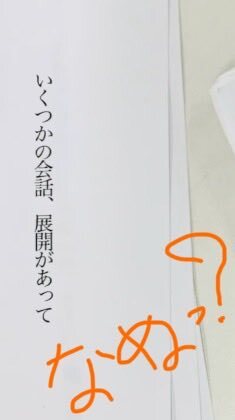 いくつかの会話、展開があって
なぬっ?